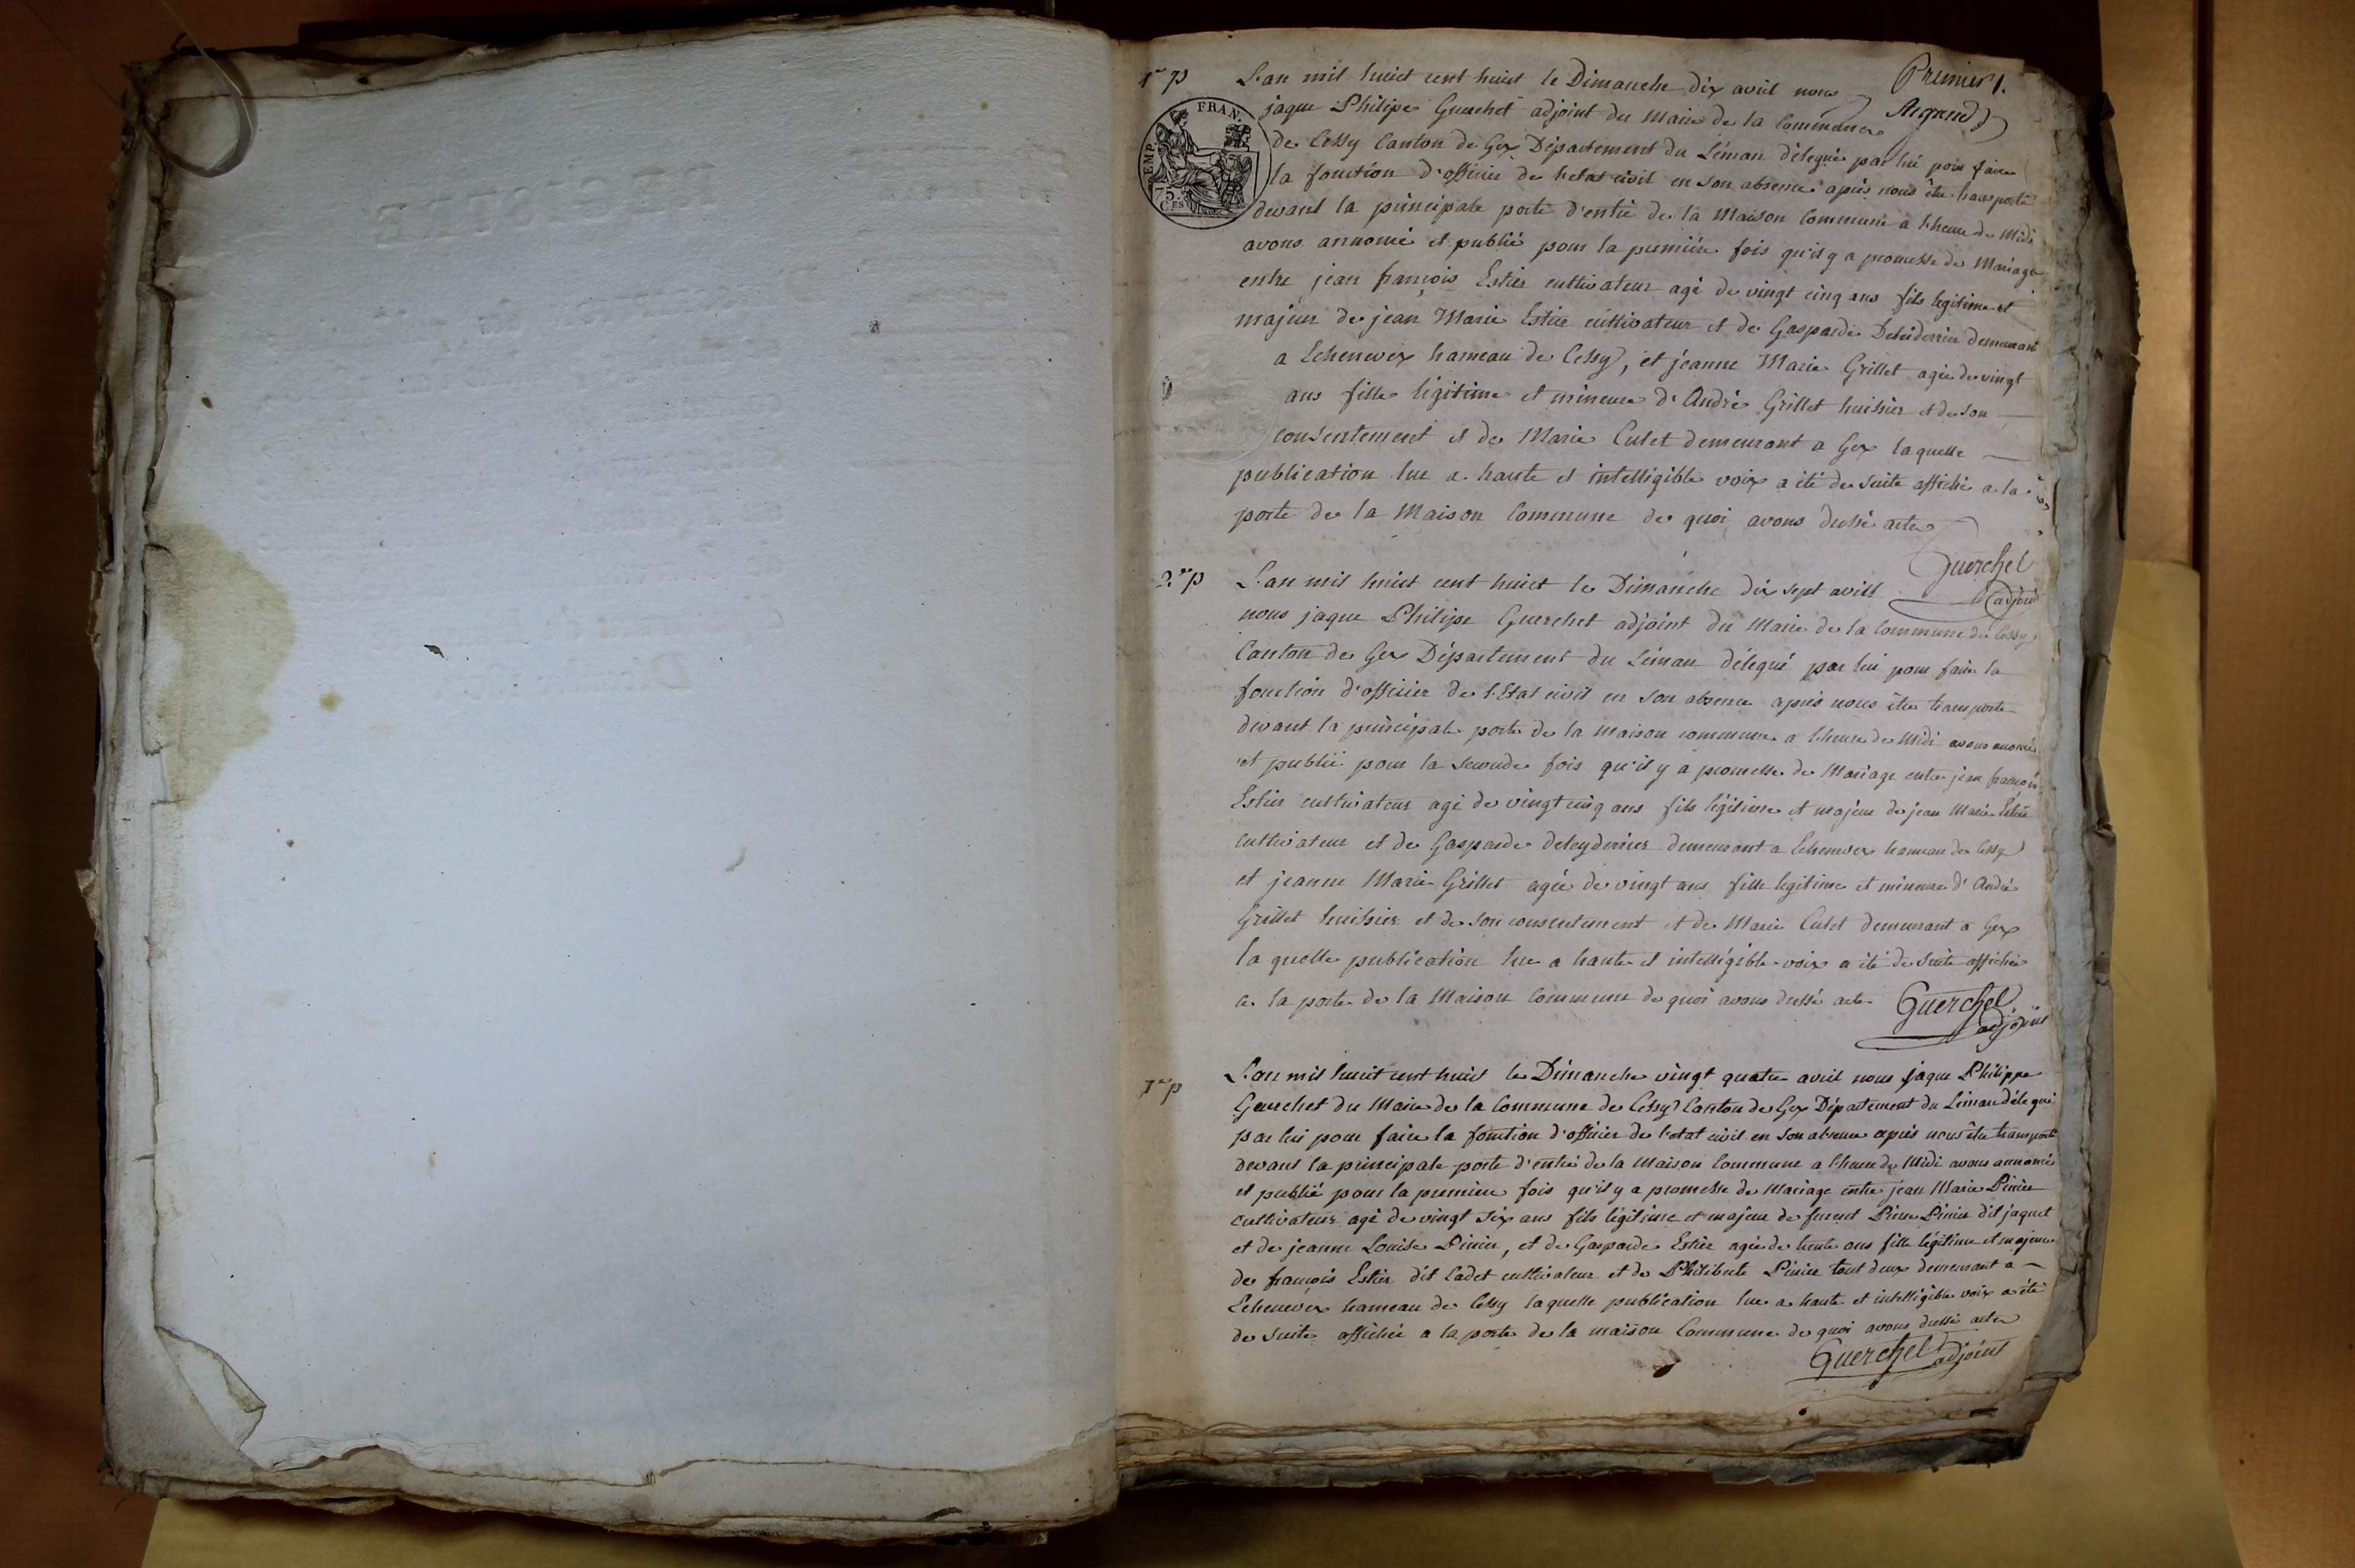 1re p
Premier 1.
Argand
EMP. FRAN.
75.
CES
L'an mil huict cent huict le Dimanche dix avril nous
jaque Philipe Guerchet adjoint du Maire de la Commune
de Cessy Canton de Gex Département du Léman délegué par lui pour faire
la fonction d'officier de l'etat civil en son absence après nous être transporté
devant la principale porte d'entré de la Maison Commune a l'heure de Midi
avons annoncé et publié pour la premiére fois qu'il y a promesse de Mariage
entre jean françois Estier cultivateur agé de vingt cinq ans fils legitime et
majeur de jean Marie Estier cultivateur et de Gasparde Deleiderrier demeurant
a Echenevex hameau de Cessy, et jeanne Marie Grillet agée de vingt
ans fille légitime et mineure d'André Grillet huissier et de son
consentement et de Marie Culet demeurant a Gex laquelle
publication lue a haute et intelligible voix a été de suite affiché a la
porte de la Maison Commune de quoi avons dressé acte
Guerchet
adjoint
2.de p
L'an mil huict cent huict le Dimanche dix sept avril
nous jaque Philipe Guerchet adjoint du Maire de la Commune de Cessy
Canton de Gex Département du Léman délegué par lui pour faire la
fonction d'officier de l'Etat civil en son absence après nous être transporté
devant la principale porte de la maison commune a l'heure de Midi avons anoncé
et publié pour la seconde fois qu'il y a promesse de Mariage entre jean françois
Estier cultivateur agé de vingt cinq ans fils légitime et majeur de jean Marie Estier
cultivateur et de Gasparde deleyderrier demeurant a Echenevex hameau de Cessy
et jeanne Marie Grillet agée de vingt ans fille legitime et mineure d'André
Grillet huissier et de son consentement et de Marie Culet demeurant a Gex
la quelle publication lue a haute et intelligible voix a été de suite affichée
a la porte de la Maison Commune de quoi avons dressé acte
Guerchet
adjoint
1re p
L'an mil huict cent huict le Dimanche vingt quatre avril nous jaque Philippe
Guerchet du Maire de la Commune de Cessy Canton de Gex Département du Léman délegué
par lui pour faire la fonction d'officier de l'etat civil en son absence après nous être transporté
devant la principale porte d'entré de la Maison Commune a l'heure de Midi avons annoncé
et publié pour la premiere fois qu'il y a promesse de Mariage entre jean Marie Pinier
cultivateur agé de vingt six ans fils légitime et majeur de feu Pierre Pinier dit jaquet
et de jeanne Louise Pinier, et de Gasparde Estier agée de trente ans fille légitime et majeure
de françois Estier dit Cadet cultivateur et de Philiberte Pinier tout deux demeurant a
Echenevex hameau de Cessy laquelle publication lue a haute et intelligible voix a été
de suite affichée a la porte de la maison Commune de quoi avons dressé acte
Guerchet adjoint